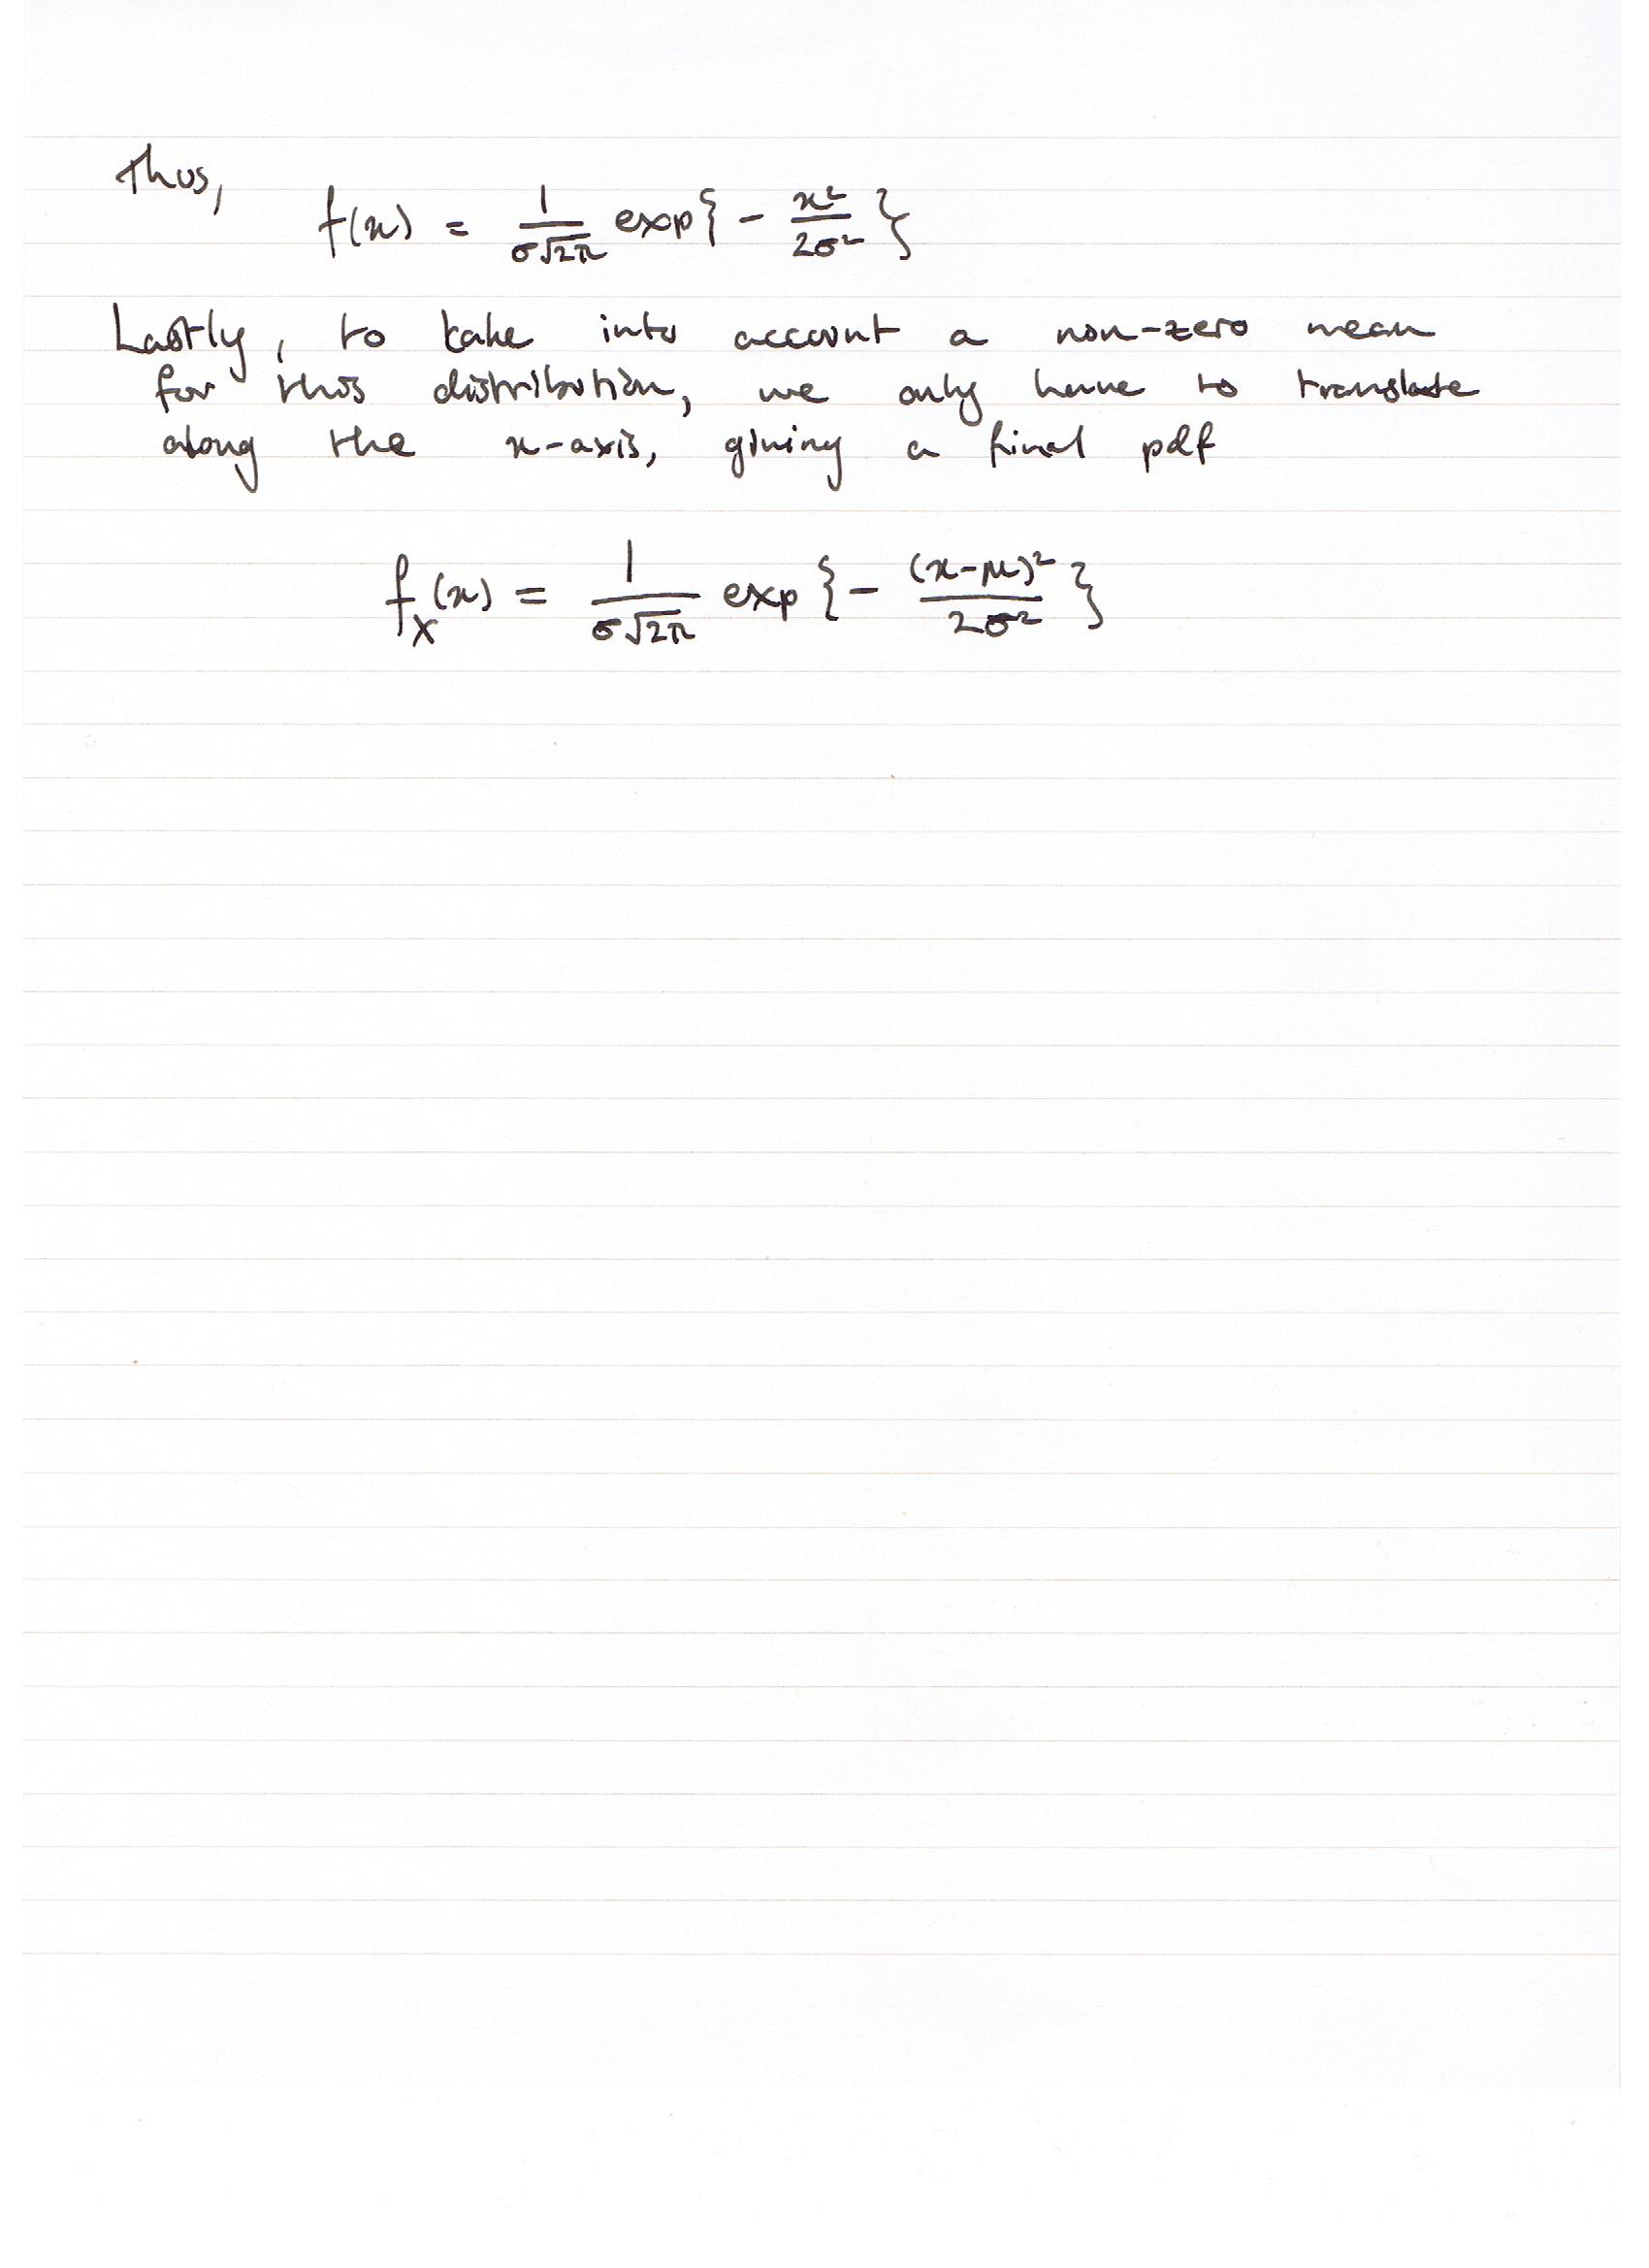 Thus,
f(x) = 1/(σ√2π) exp{ - x²/(2σ²) }
Lastly, to take into account a non-zero mean
for this distribution, we only have to translate
along the x-axis, giving a final pdf
f_X(x) = 1/(σ√2π) exp{ - (x-μ)²/(2σ²) }